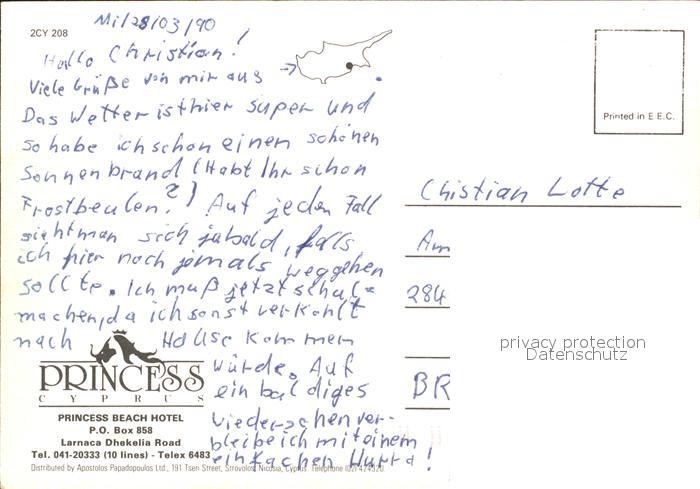 2CY 208
Mi/28/03/90
Hallo Christian!
Viele Grüße von mir aus →
Das Wetter ist hier super und
so habe ich schon einen schönen
Sonnenbrand (Habt Ihr schon
Frostbeulen?) Auf jeden Fall
sieht man sich ja bald, falls
ich hier noch jemals weggehen
sollte. Ich muß jetzt schluß
machen, da ich sonst verkohlt
nach Hause kommen
würde. Auf
ein baldiges
Wiedersehen ver-
bleibe ich mit einem
einfachen Hurra!
PRINCESS
CYPRUS
PRINCESS BEACH HOTEL
P.O. Box 858
Larnaca Dhekelia Road
Tel. 041-20333 (10 lines) - Telex 6483
Distributed by Apostolos Papadopoulos Ltd., 191 Tsen Street, Strovolos, Nicosia, Cyprus. Telephone (02) 424520
Printed in E.E.C.
Christian Lotte
Am
284
BR
privacy protection
Datenschutz